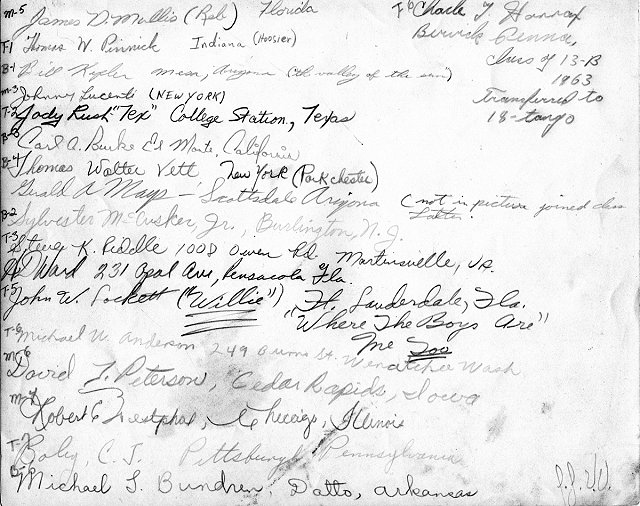 M-5 James D. Mullis (Rob) Florida
T-1 Thomas W. Pinnick Indiana (Hoosier)
B-1 Bill Kepler Mesa, Arizona ("the valley of the sun")
M-3 Johnny Lucenti (NEW YORK)
T-2 Jody Rush "Tex" College Station, Texas
B-3 Carl A. Burke El Monte, California
B-4 Thomas Walter Vett New York (Parkchester)
Gerald A Mays - Scottsdale Arizona (not in picture joined class later.
B-2 Sylvester McCusker, Jr., Burlington, N.J.
T-3 Steve K. Riddle 1008 Owen Rd. Martinsville, VA.
Ward 231 Opal Ave, Pensacola Fla.
T-5 John W. Lockett ("Willie") Ft. Lauderdale, Fla.
"Where The Boys Are"
Me Too
T-6 Michael W. Anderson 249 Burns St. Wenatchee Wash
M-6 David J. Peterson, Cedar Rapids, Iowa
M-4 Robert E Westphal, Chicago, Illinois
T-7 Boby, C. J. Pittsburgh Pennsylvania
B-5 Michael L. Bundren, Datto, Arkansas
Charle T. Hannax
Berwick Penna,
Class of 13-B
1963
Transferred to
18-tango